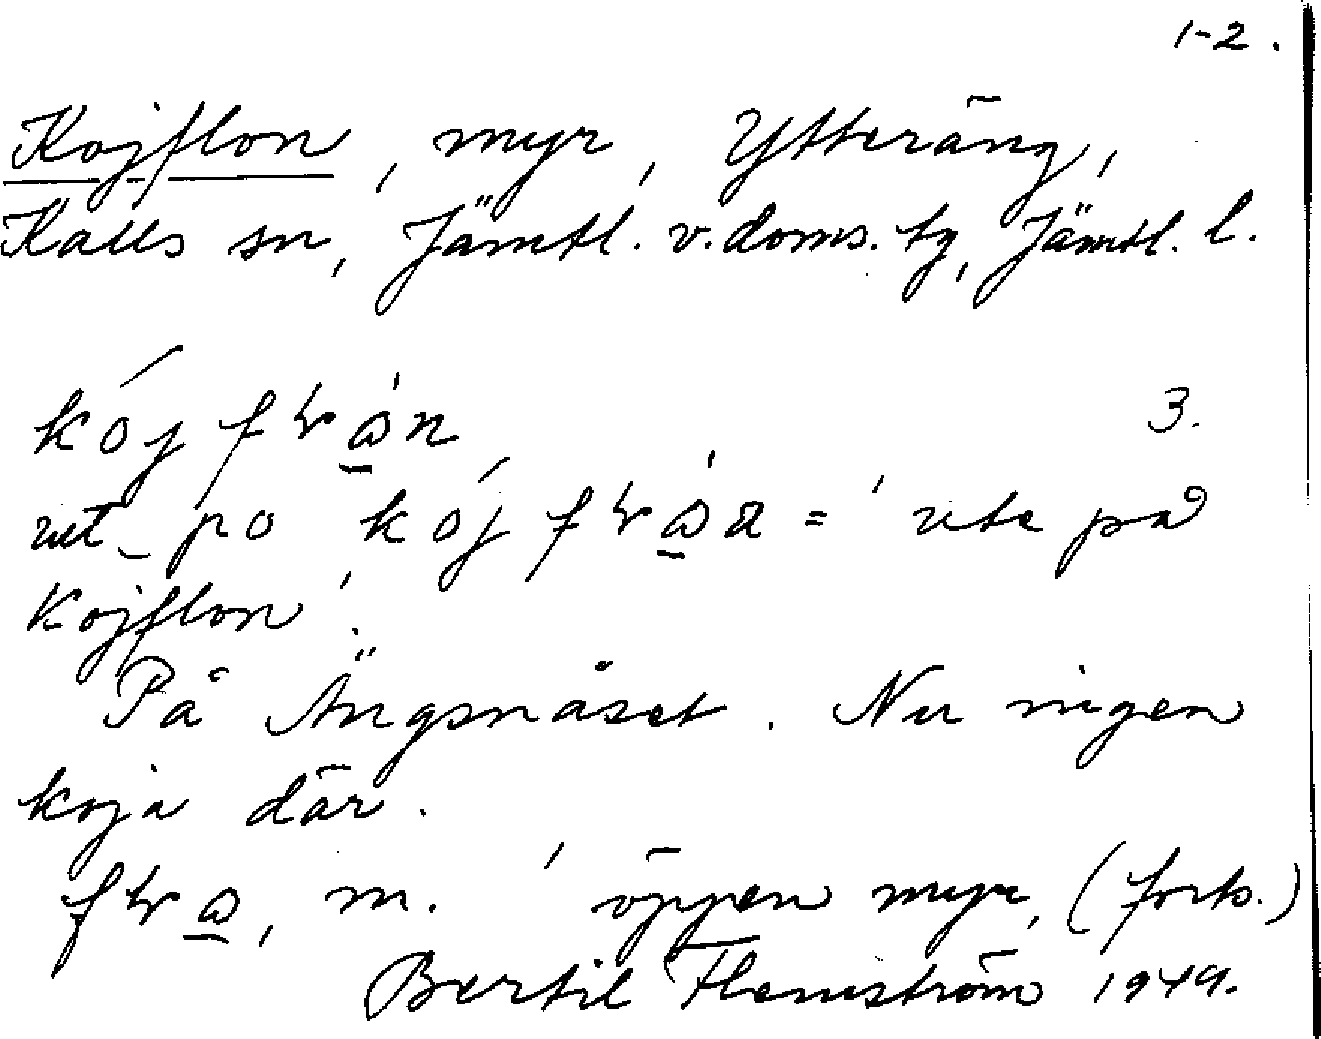 1-2.
Kojflon, myr, Ytteräng,
Kalls sn, Jämtl. v. doms. tg, Jämtl. l.
3.
ut_ po = 'ute på
Kojflon'.
På Ängsnäset. Nu ingen
koja där.
m. 'öppen myr, (forts.)
Bertil Flemström 1949.